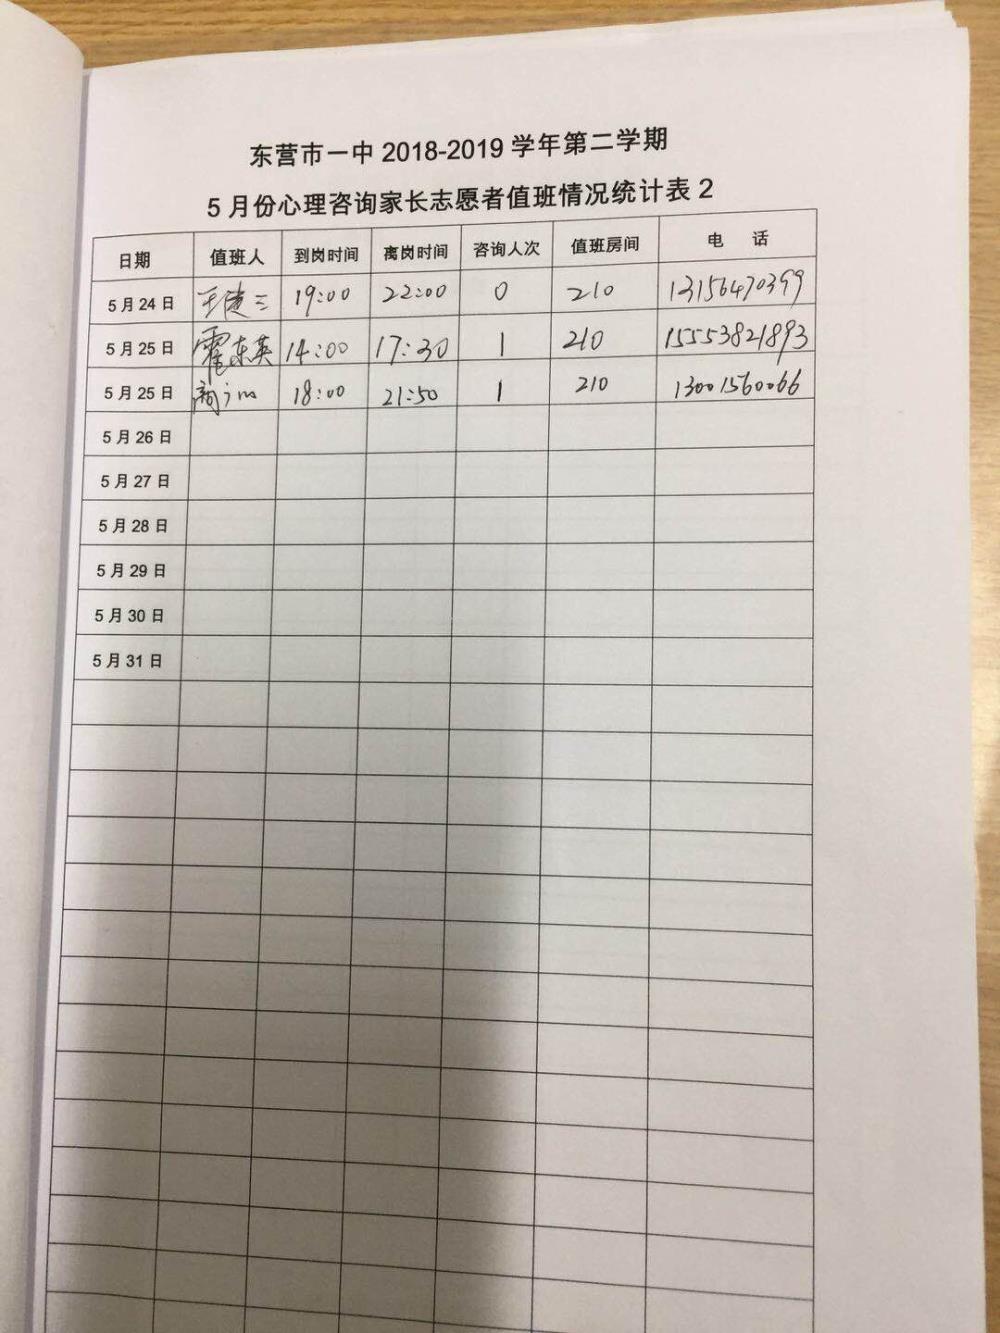 东营市一中2018-2019学年第二学期
5月份心理咨询家长志愿者值班情况统计表2
日期 值班人 到岗时间 离岗时间 咨询人次 值班房间 电 话
5月24日 19:00 22:00 0 210 13156470399
5月25日 霍东英 14:00 17:30 1 210 15553821893
5月25日 18:00 21:50 1 210 13001560066
5月26日
5月27日
5月28日
5月29日
5月30日
5月31日